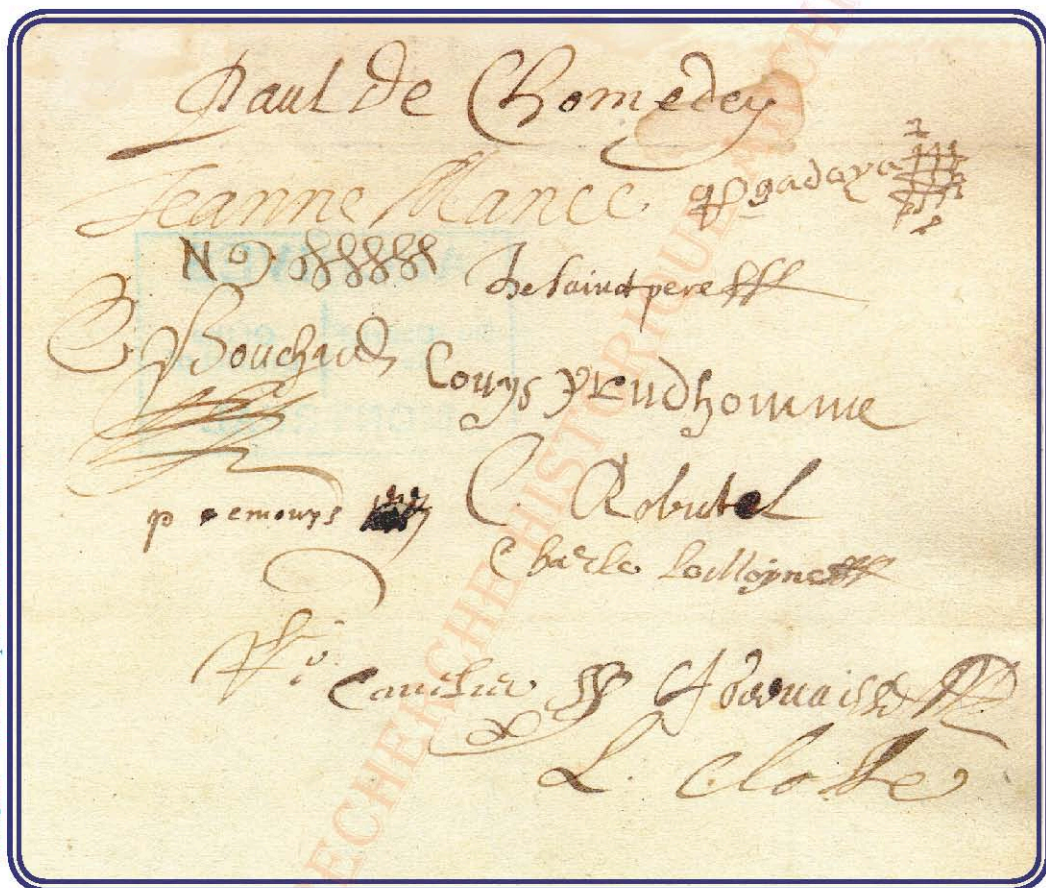 Paul de Chomedey
Jeanne Mance p gadoys
No
de saint pere
Bouchard Louys prudhomme
p remoups C. Robutel
Charle Le Moyne
L. Closse
RECHERCHE HISTORIQUE ARCH